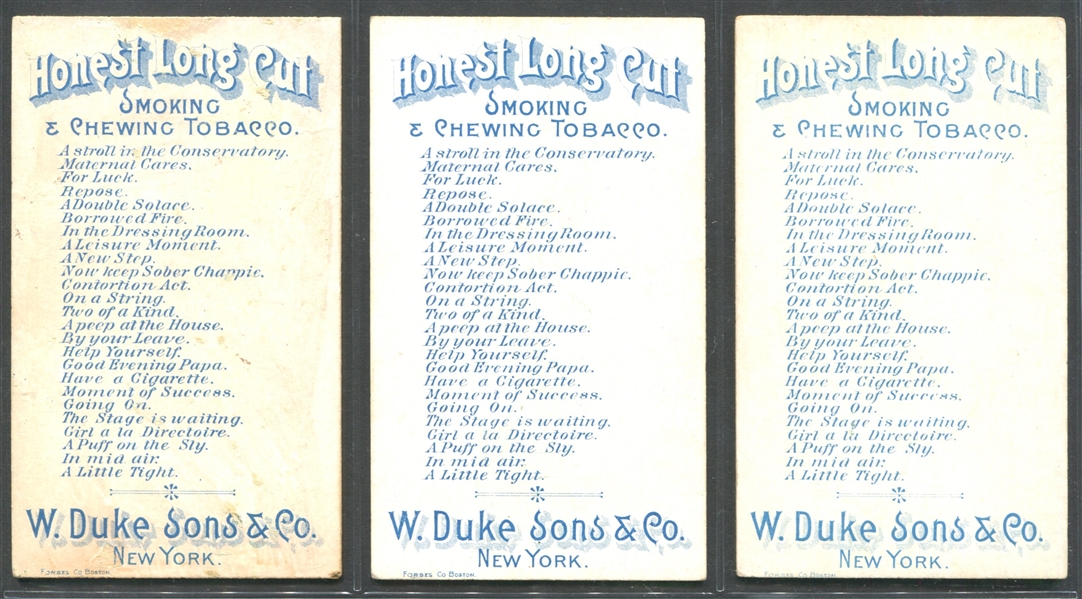 Honest Long Cut
Smoking
& Chewing Tobacco.
A stroll in the Conservatory.
Maternal Cares.
For Luck.
Repose.
A Double Solace.
Borrowed Fire.
In the Dressing Room.
A Leisure Moment.
A New Step.
Now keep Sober Chappie.
Contortion Act.
On a String.
Two of a Kind.
A peep at the House.
By your Leave.
Help Yourself.
Good Evening Papa.
Have a Cigarette.
Moment of Success.
Going On.
The Stage is waiting.
Girl a la Directoire.
A Puff on the Sly.
In mid air.
A Little Tight.
W. Duke Sons & Co.
New York.
Forbes Co Boston.
Honest Long Cut
Smoking
& Chewing Tobacco.
A stroll in the Conservatory.
Maternal Cares.
For Luck.
Repose.
A Double Solace.
Borrowed Fire.
In the Dressing Room.
A Leisure Moment.
A New Step.
Now keep Sober Chappie.
Contortion Act.
On a String.
Two of a Kind.
A peep at the House.
By your Leave.
Help Yourself.
Good Evening Papa.
Have a Cigarette.
Moment of Success.
Going On.
The Stage is waiting.
Girl a la Directoire.
A Puff on the Sly.
In mid air.
A Little Tight.
W. Duke Sons & Co.
New York.
Forbes Co Boston.
Honest Long Cut
Smoking
& Chewing Tobacco.
A stroll in the Conservatory.
Maternal Cares.
For Luck.
Repose.
A Double Solace.
Borrowed Fire.
In the Dressing Room.
A Leisure Moment.
A New Step.
Now keep Sober Chappie.
Contortion Act.
On a String.
Two of a Kind.
A peep at the House.
By your Leave.
Help Yourself.
Good Evening Papa.
Have a Cigarette.
Moment of Success.
Going On.
The Stage is waiting.
Girl a la Directoire.
A Puff on the Sly.
In mid air.
A Little Tight.
W. Duke Sons & Co.
New York.
Forbes Co Boston.